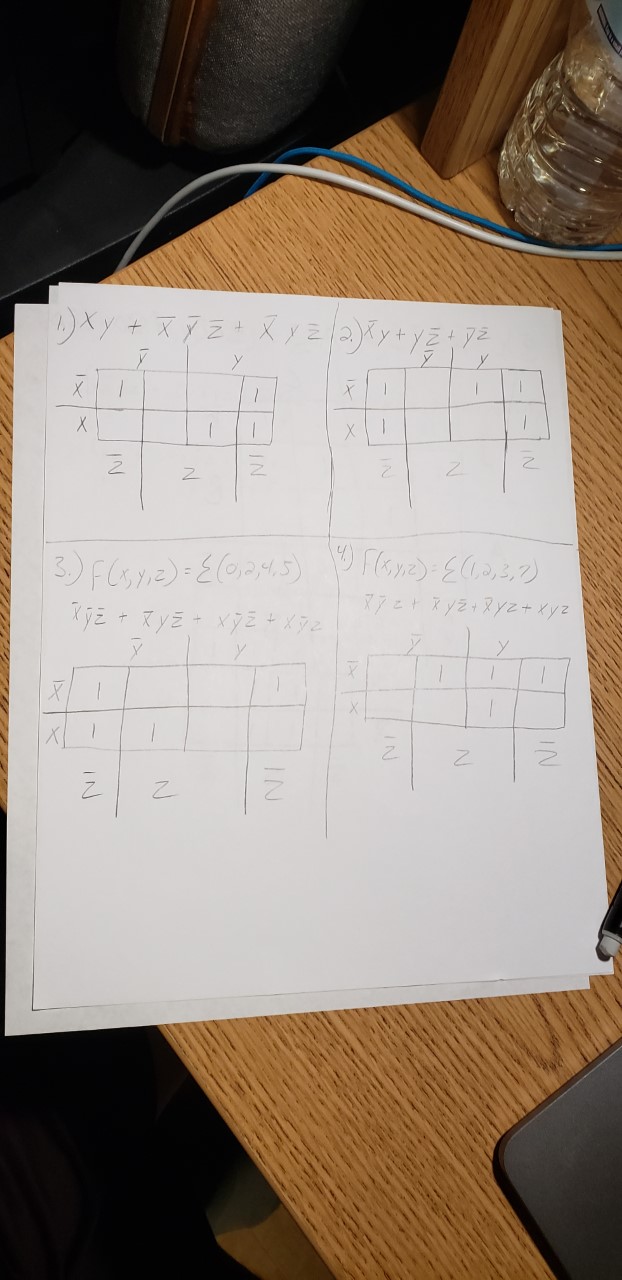 1.) xy + x̄ ȳ z̄ + x̄ y z̄
ȳ y
x̄ 1 1
x 1 1
z̄ z z̄
2.) x̄y + yz̄ + ȳz̄
ȳ y
x̄ 1 1 1
x 1 1
z̄ z z̄
3.) F(x,y,z) = Σ(0,2,4,5)
x̄ȳz̄ + x̄yz̄ + xȳz̄ + xȳz
ȳ y
x̄ 1 1
x 1 1
z̄ z z̄
4.) F(x,y,z) = Σ(1,2,3,7)
x̄ȳz + x̄yz̄ + x̄yz + xyz
ȳ y
x̄ 1 1 1
x 1
z̄ z z̄